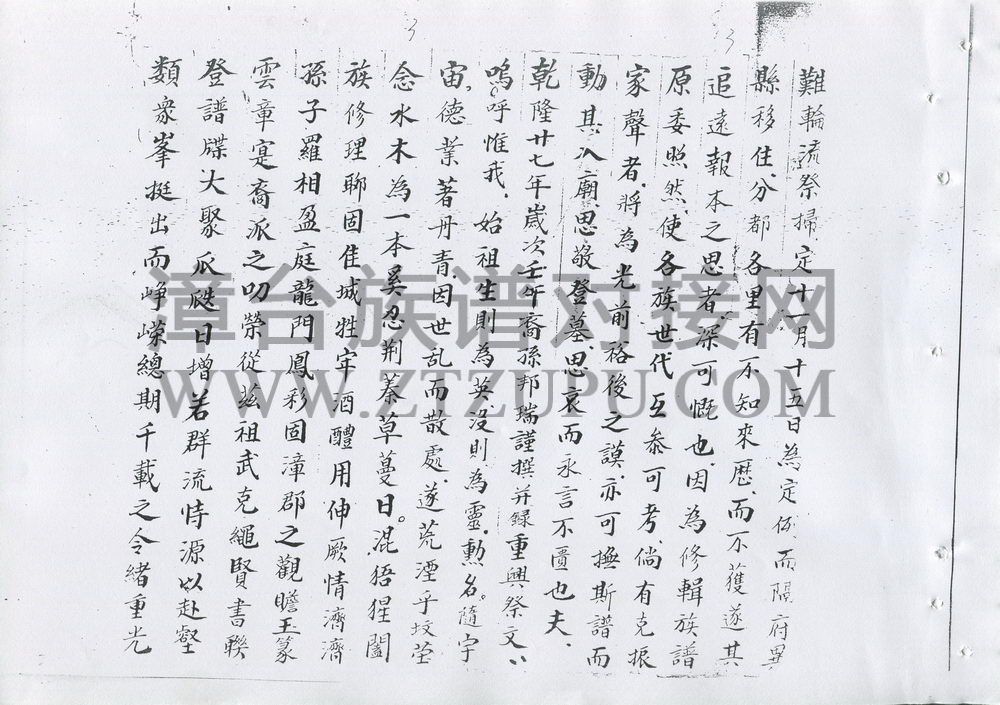 難輪流祭掃定十一月十五日為定例而隔府異
縣移住分都各里有不知來歷而不獲遂其
追遠報本之思者深可慨也因為修輯族譜
原委照然使各族世代互參可考倘有克振
家聲者將為光前裕後之謨亦可撫斯譜而
動其入廟思敬登墓思哀而永言不匱也夫
乾隆廿七年歲次壬午裔孫邦瑞謹撰并錄重興祭文
嗚呼惟我始祖生則為英沒則為靈勲名隨宇
宙德業著丹青因世乱而散處遂荒湮乎坟茔
念水木為一本奚忍荆蓁草蔓日混狉猩闔
族修理聊固佳城牲牢酒醴用伸厥情濟濟
孫子羅相盈庭龍門鳳彩固漳郡之觀瞻玉篆
雲章寔裔派之叨榮從茲祖武克繩賢書聯
登譜牒大聚瓜瓞日增若群流恃源以赴壑
類衆峯挺出而崢嶸總期千載之令緒重光
漳台族谱对接网
WWW.ZTZUPU.COM